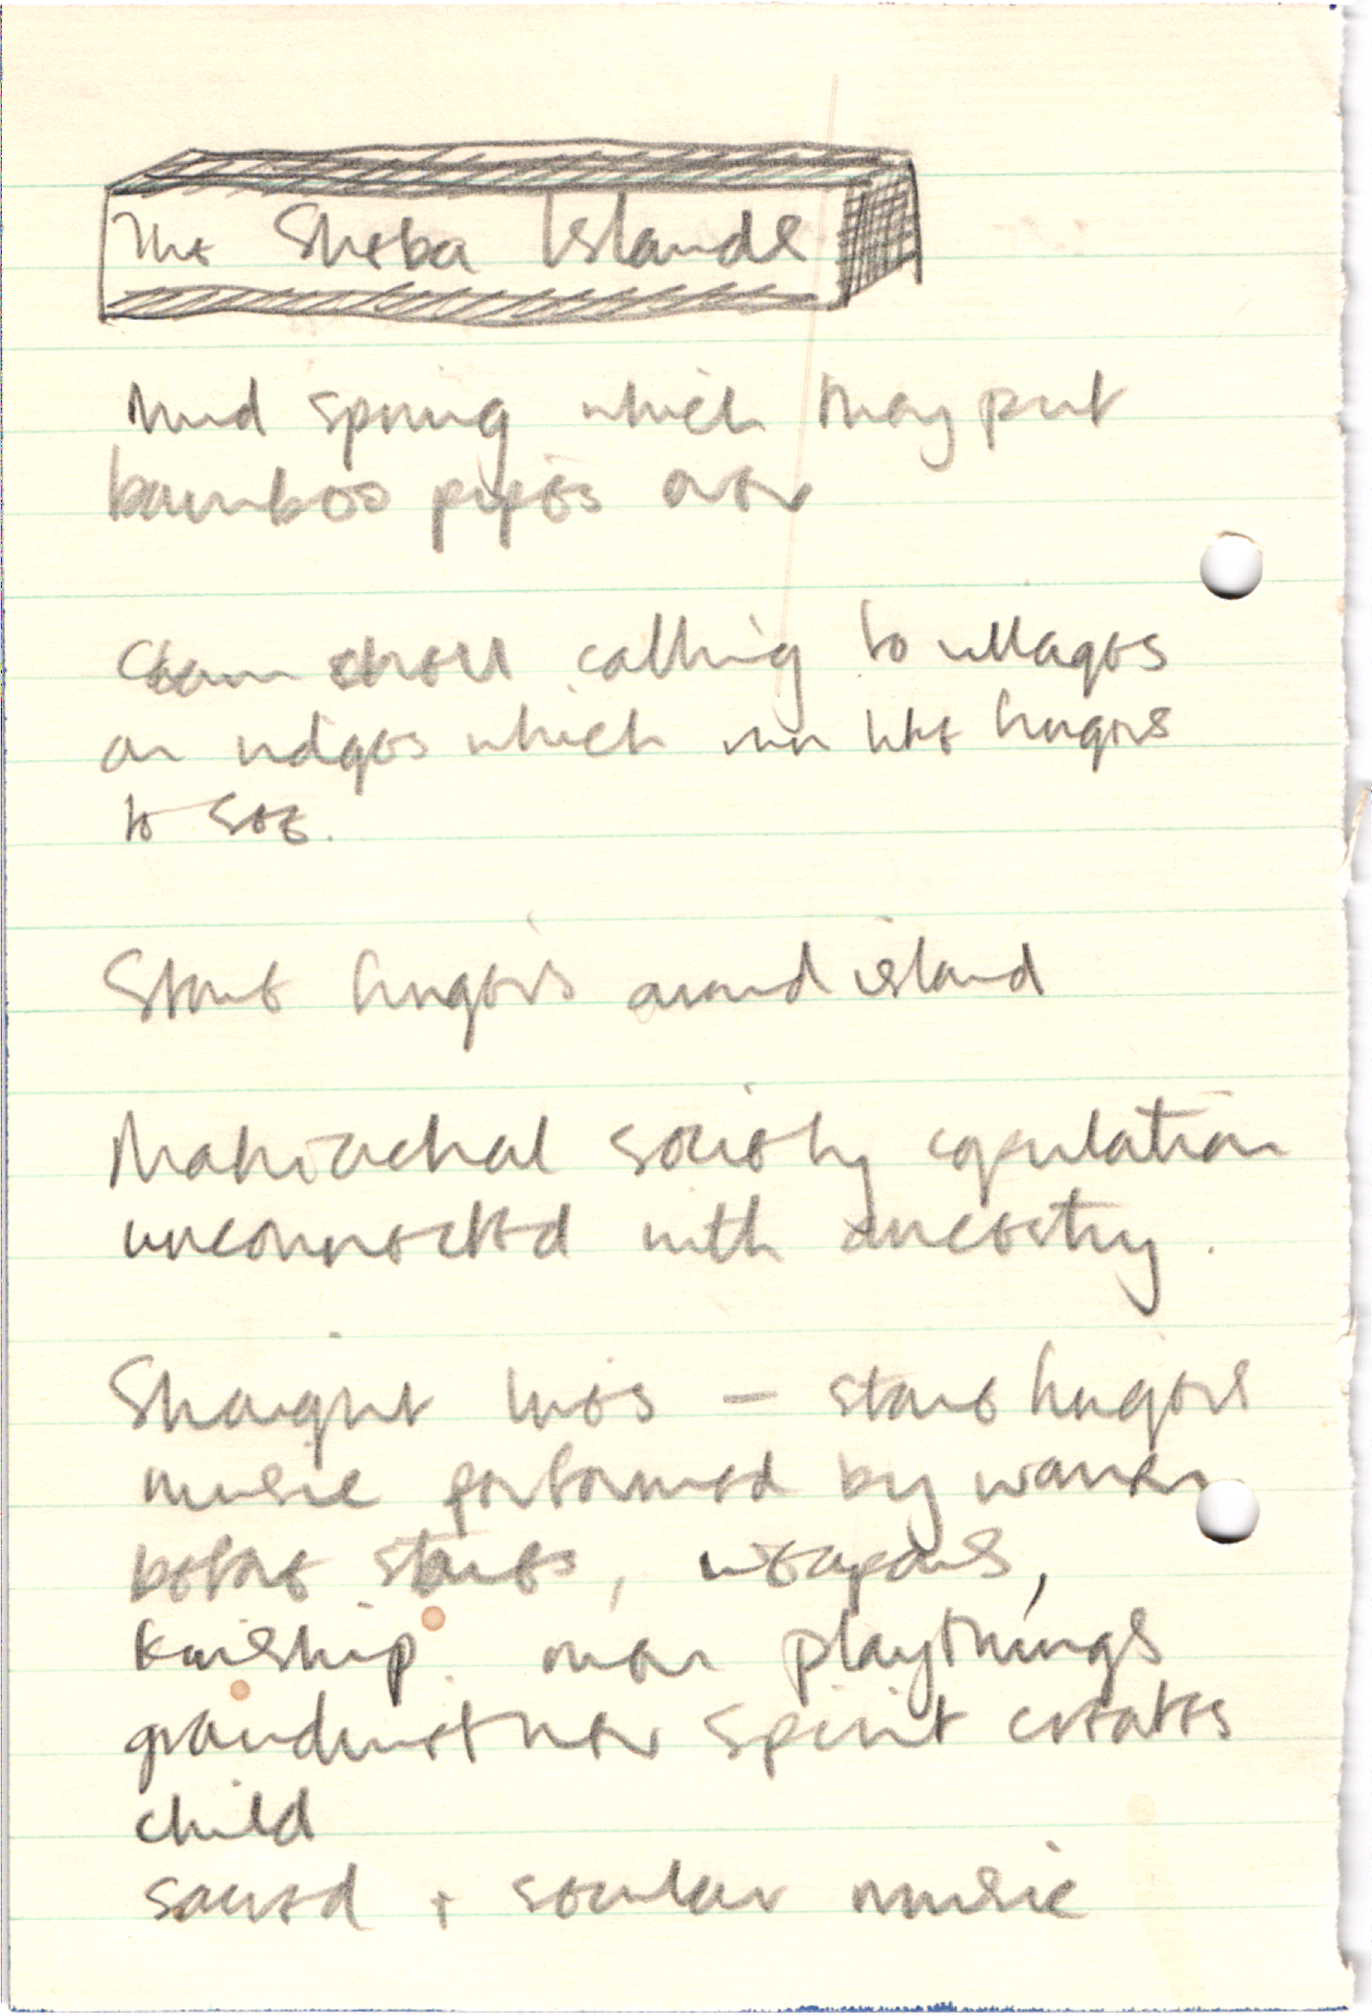 The Sheba Islands
Mud spring which they put
bamboo pipes over
Clam shell calling to villages
on ridges which run like fingers
to sea.
Stone fingers around island
Matriarchal society copulation
unconnected with ancestry.
Straight lines — stone fingers
music performed by women
before stones, weapons,
kinship over playthings
grandmother spirit creates
child
sacred + secular music